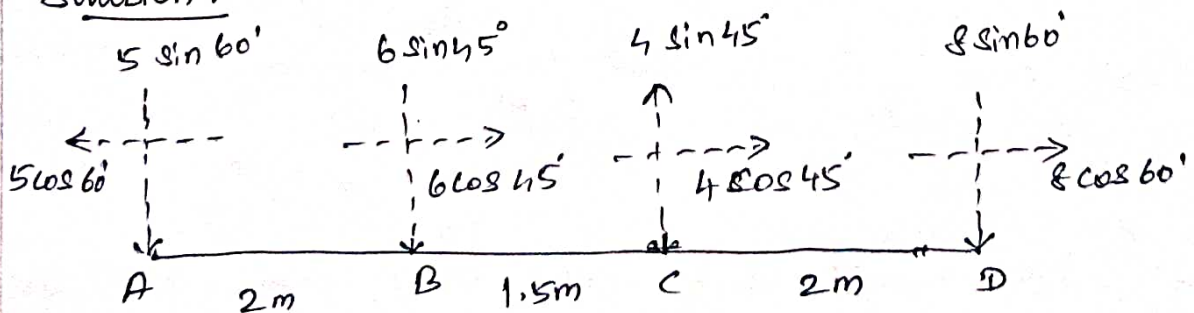 5 sin 60° 6 sin 45° 4 sin 45° 8 sin 60°
5 cos 60° 6 cos 45° 4 cos 45° 8 cos 60°
A 2m B 1.5m C 2m D